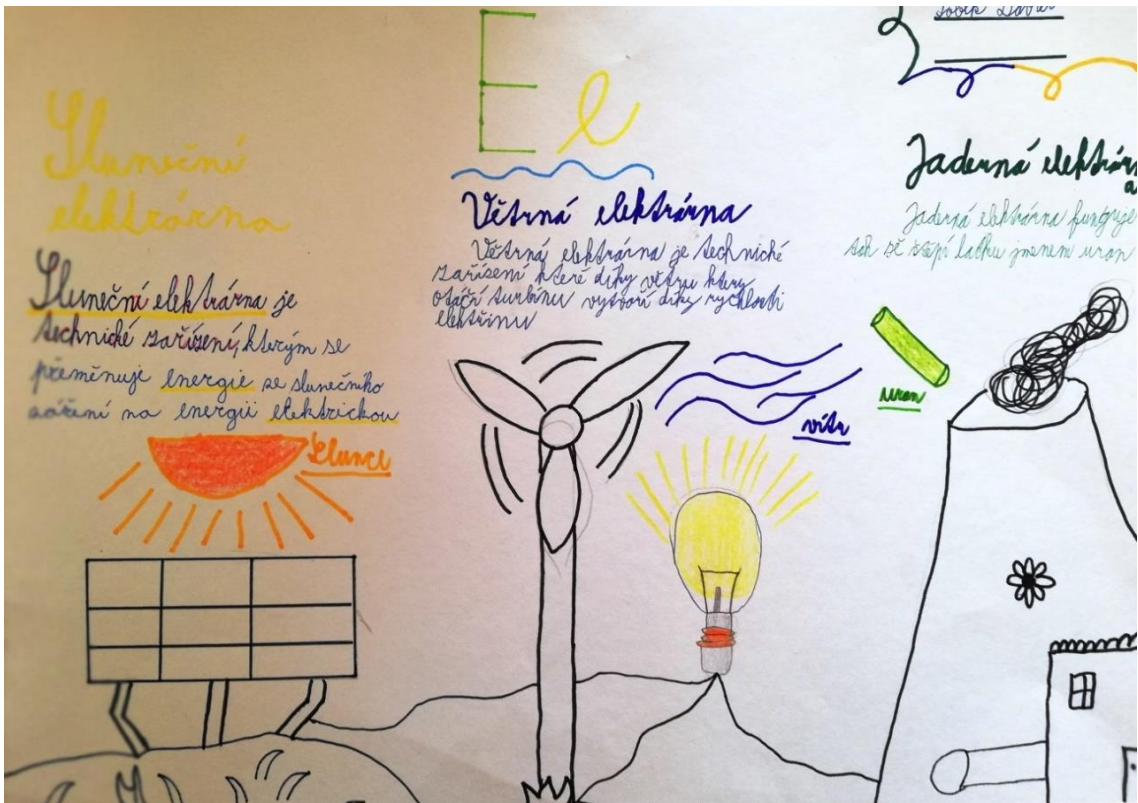 El
Sluneční
elektrárna
Sluneční elektrárna je
technické zařízení, kterým se
přeměnuje energie se slunečního
záření na energii elektrickou
Slunce
Větrná elektrárna
Větrná elektrárna je technické
zařízení které díky větru který
otáčí turbínu vytvoří díky rychlosti
elektřinu
vítr
Jaderná elektrárn
a
Jaderná elektrárna funguje
tak štěpí látku jmenem uran
uran